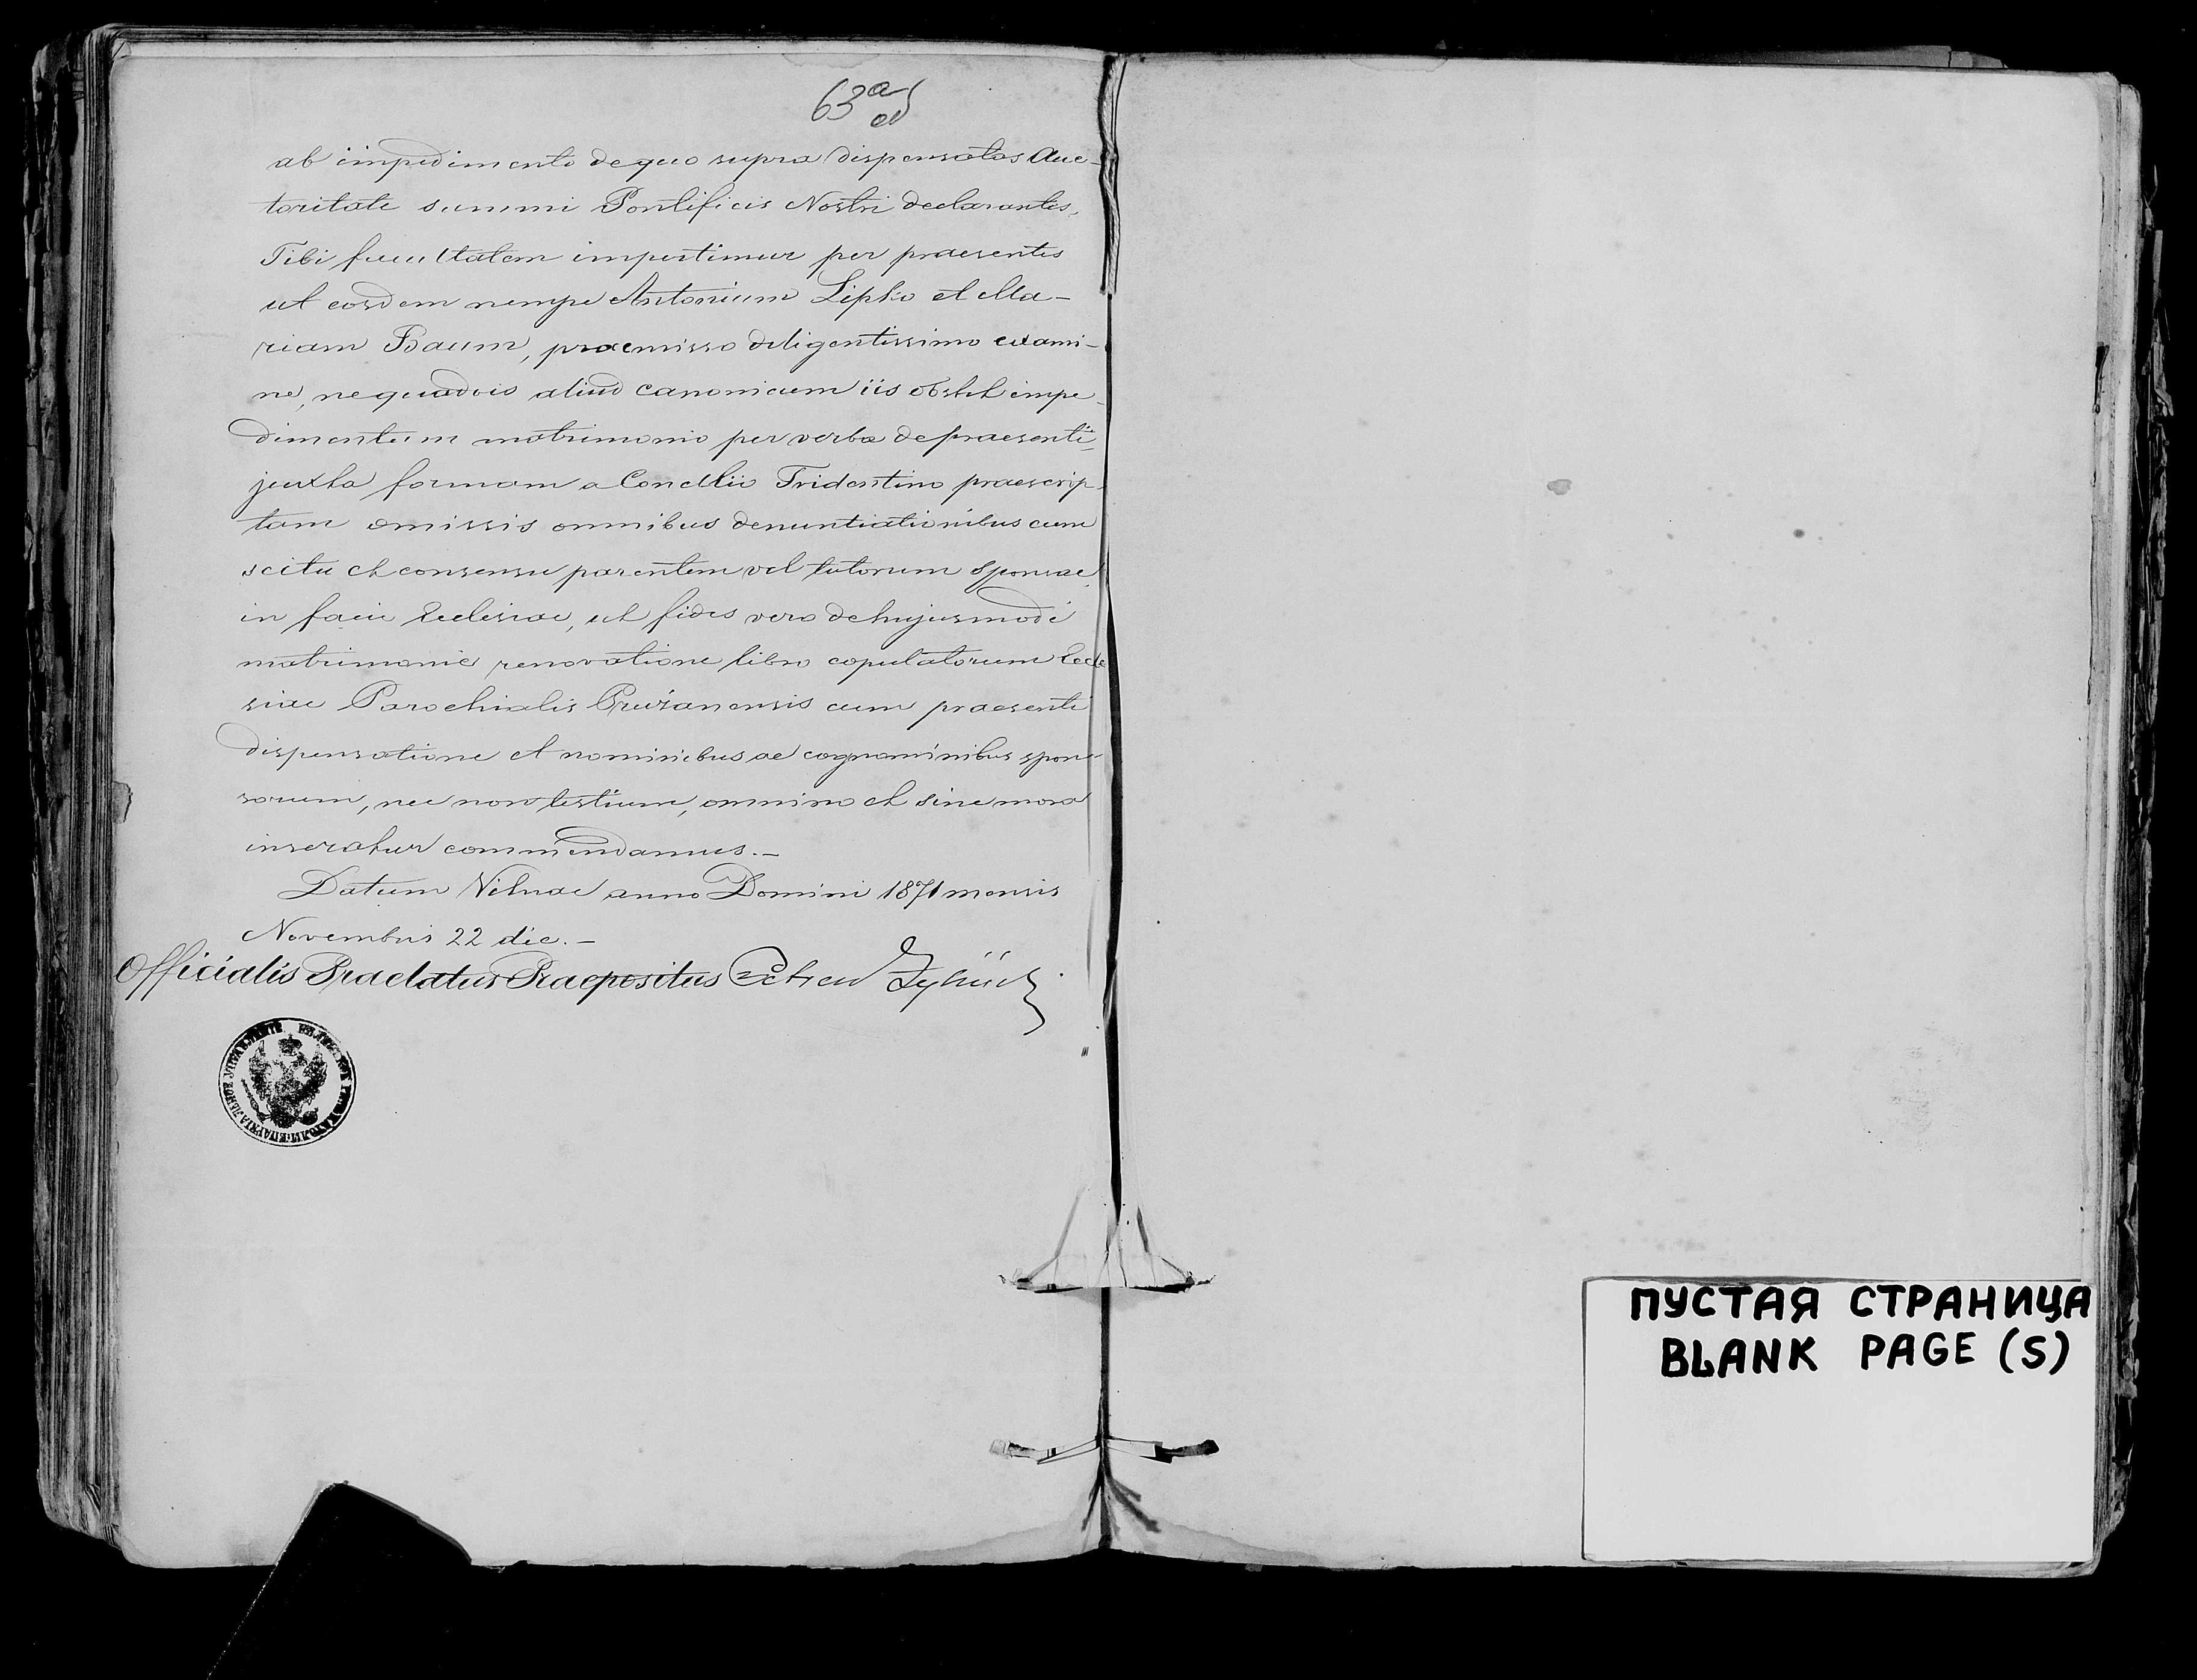 63 a
ab impedimento de quo supra dispensatos Auc-
toritate summi Pontificis Nostri declarantes,
Tibi facultatem impertimur per praesentes
ut eosdem nempe Antonium Lipko et Ma-
riam Baum, praemisso diligentissimo exami-
ne, ne quodvis aliud canonicum iis obstet impe-
dimentum matrimonio per verba de praesenti
juxta formam a Concilio Tridentino praescrip-
tam omissis omnibus denuntiationibus cum
scitu et consensu parentem vel tutorum sponsae,
in facie Ecclesiae, ut fides vero de hujusmodi
matrimonii renovatione libro copulatorum Eccle
siae Parochialis Prużanensis cum praesenti
dispensatione et nominibus ac cognominibus spon-
sorum, nec non testium, omnino et sine mora
inseratur commendamus.-
Datum Vilnae anno Domini 1871 mensis
Novembris 22 die.-
Officialis Praelatus Praepositus Petrus
ПУСТАЯ СТРАНИЦА
BLANK PAGE (S)